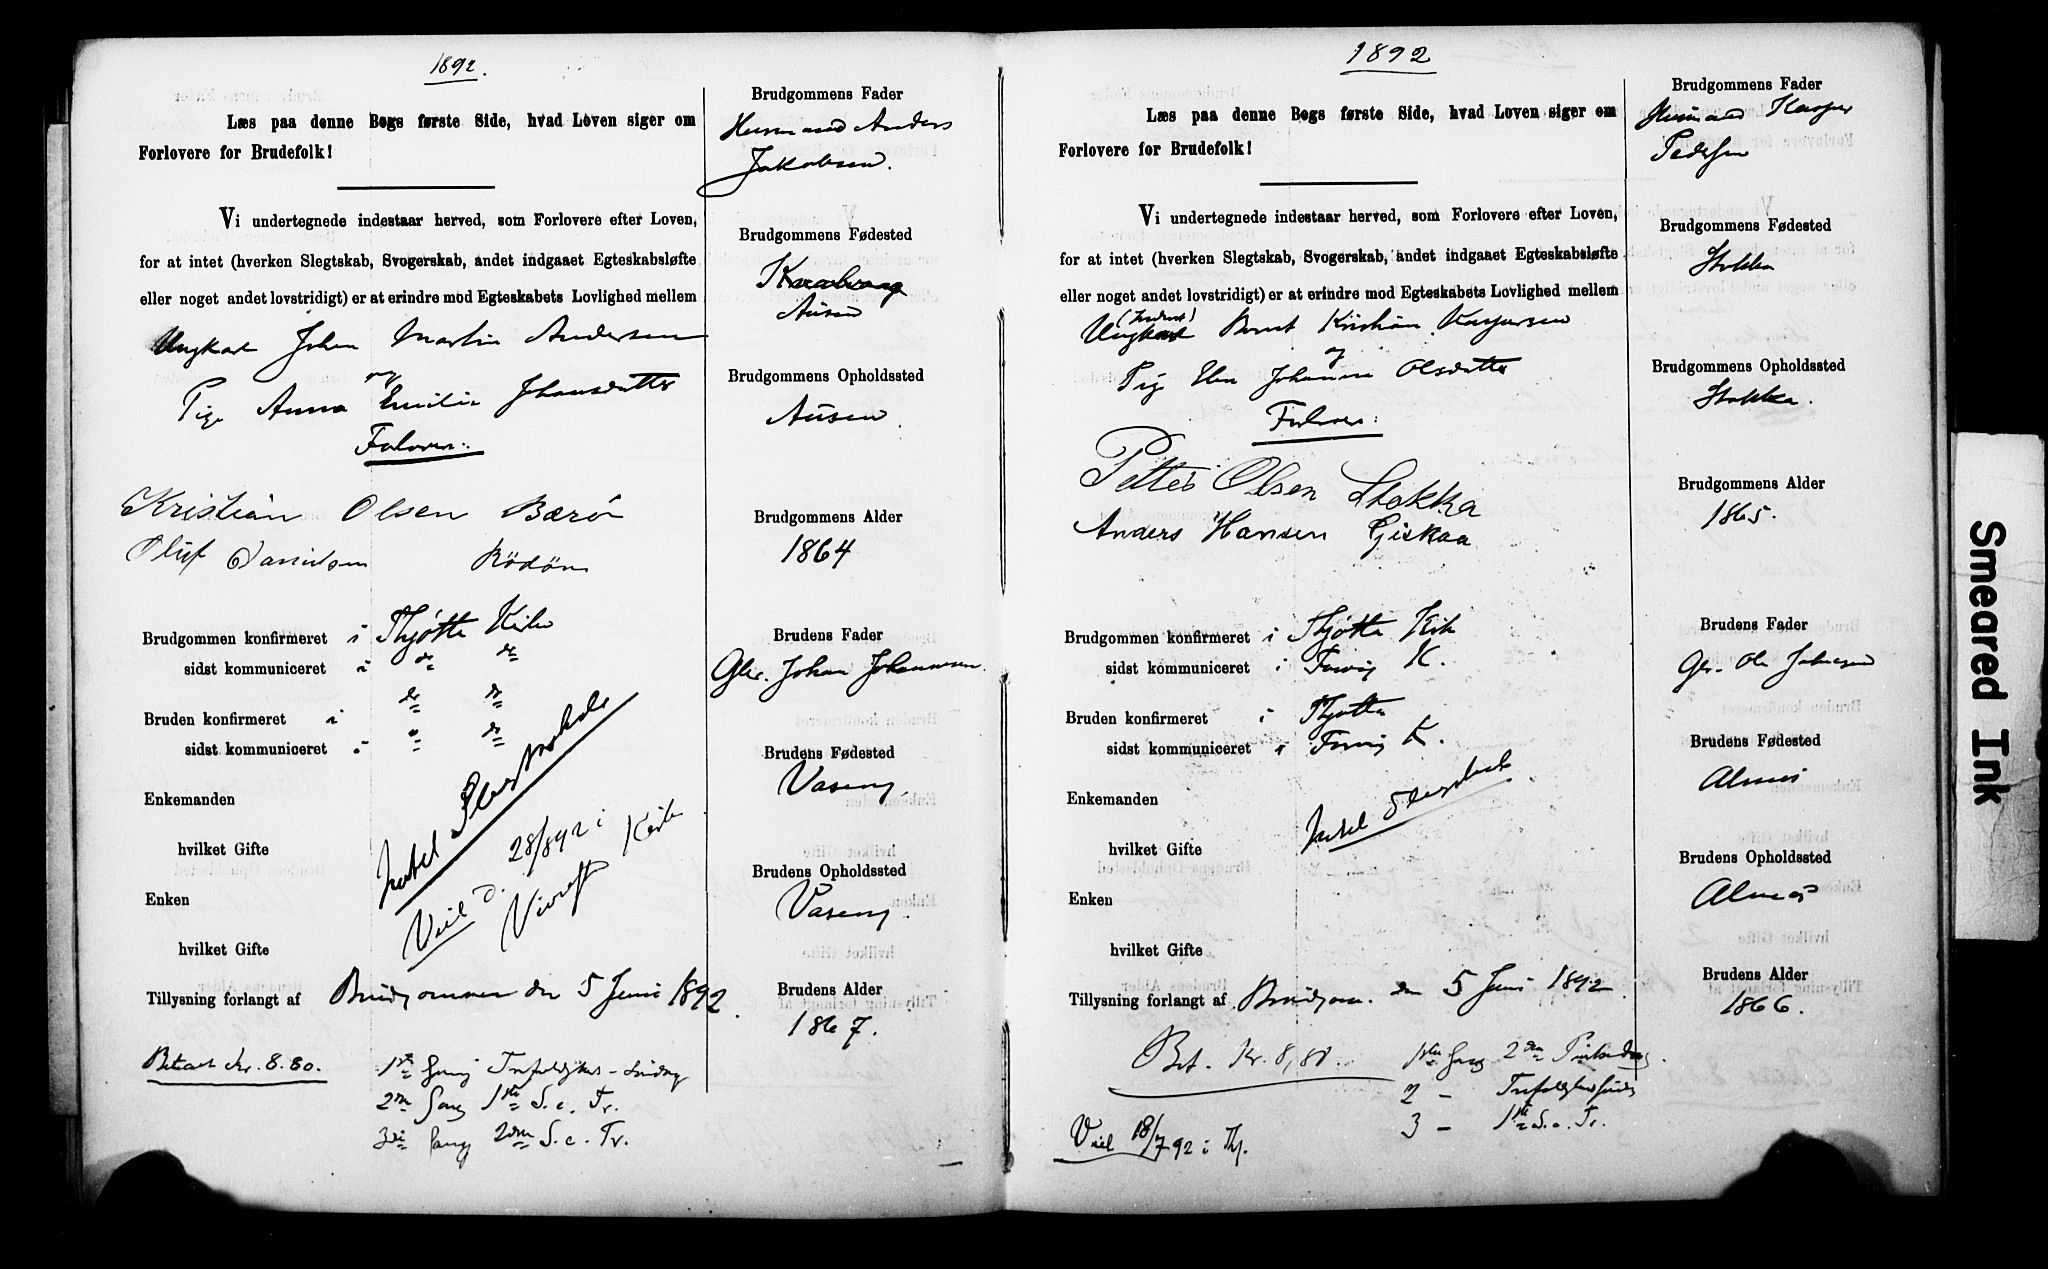 1892.
Læs paa denne Bogs første Side, hvad Loven siger om
Forlovere for Brudefolk!
Vi undertegnede indestaar herved, som Forlovere efter Loven,
for at intet (hverken Slegtskab, Svogerskab, andet indgaaet Egteskabsløfte
eller noget andet lovstridigt) er at erindre mod Egteskabets Lovlighed mellem
Ungkarl Johan Martin Andersen
og
Pige Anna Emilie Johansdatter
Forlovere:
Kristian Olsen Bærö
Oluf Danielsen Rödön
Brudgommen konfirmeret i Thjøtta Kirke
sidst kommuniceret i do do
Bruden konfirmeret i do do
sidst kommuniceret i do do
Enkemanden
hvilket Gifte
Intet Slegtskab
Enken
Viet d. 28/8 92 i Kirke
hvilket Gifte
Tillysning forlangt af Brudgommen den 5 Juni 1892.
Betalt Kr. 8.80.
1ste Gang Trefoldigheds-Søndag
2den Gang 1ste S. e. Tr.
3die Gang 2den S. e. Tr.
Brudgommens Fader
Husmand Anders
Jakobsen.
Brudgommens Fødested
Ausen
Brudgommens Opholdssted
Ausen
Brudgommens Alder
1864
Brudens Fader
Gbr. Johan Johannesen.
Brudens Fødested
Vaseng
Brudens Opholdssted
Vaseng
Brudens Alder
1867.
1892
Læs paa denne Bogs første Side, hvad Loven siger om
Forlovere for Brudefolk!
Vi undertegnede indestaar herved, som Forlovere efter Loven,
for at intet (hverken Slegtskab, Svogerskab, andet indgaaet Egteskabsløfte
eller noget andet lovstridigt) er at erindre mod Egteskabets Lovlighed mellem
Ungkarl Bernt Kristian Kaspersen
og
Pige Elen Johanna Olsdatter
Forlovere:
Petter Olsen Stokka
Anders Hansen Giskaa
Brudgommen konfirmeret i Thjøtta Kirke
sidst kommuniceret i Forvig K.
Bruden konfirmeret i Thjøtta
sidst kommuniceret i Forvig K.
Enkemanden
hvilket Gifte
Intet Slegtskab
Enken
hvilket Gifte
Tillysning forlangt af Brudgom. den 5 Juni 1892
Bet. Kr. 8,80.
1ste Gang 2den Pintsedag.
2 - Trefoldighedssøndag
3 - 1ste S. e. Tr.
Viet 18/7 92 i Thj.
Brudgommens Fader
Husmand Kasper
Pedersen
Brudgommens Fødested
Stokka
Brudgommens Opholdssted
Stokka.
Brudgommens Alder
1865.
Brudens Fader
Gbr. Ole
Brudens Fødested
Brudens Opholdssted
Brudens Alder
1866.
Smeared Ink